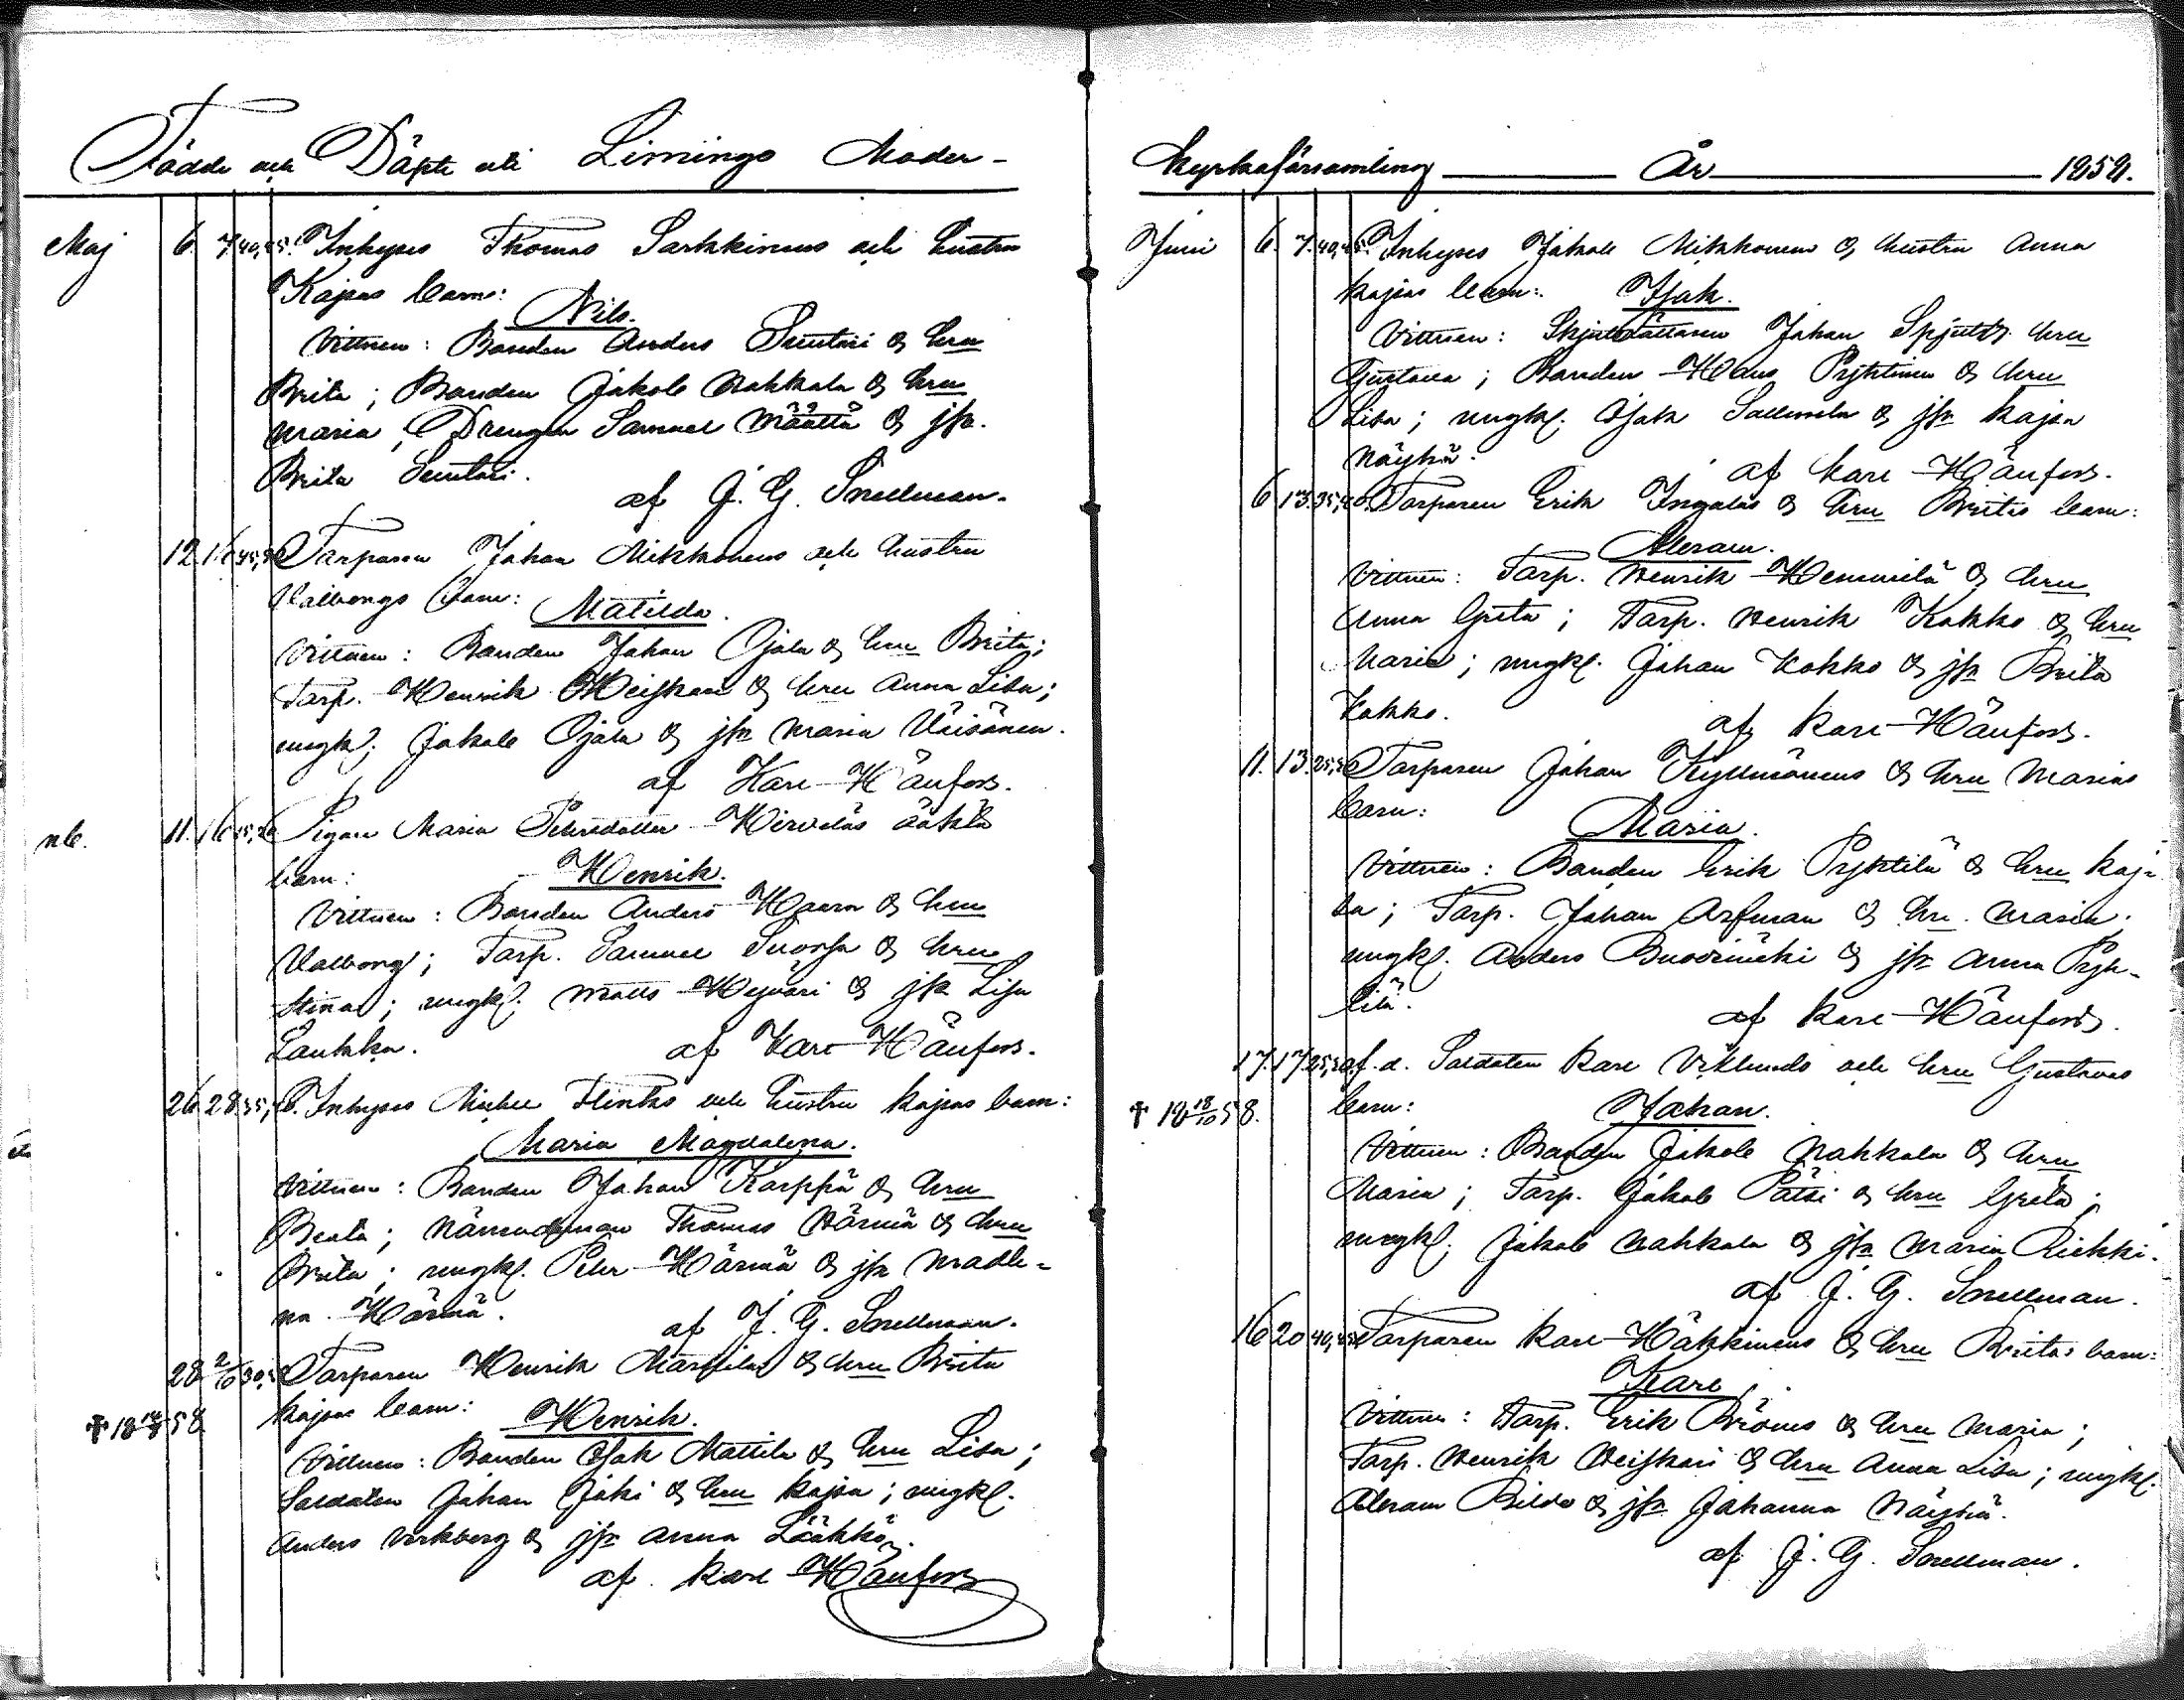 Födde och Döpte uti Limingo Moder-
Maj 6. 7. 40,45. Inhyses Thomas Sarkkinens och hustru
Kajsas barn:
Nils.
Vittnen: Bonden Anders Suutari & hru
Brita; Bonden Jakob Nahkala & hru
Maria; Drengen Samuel Määttä & jfr.
Brita Suutari.
af J. G. Snellman.
12. 16. Torparen Johan Mikkonens och hustru
Valborgs barn: Matilda.
Vittnen: Bonden Johan Ojala & hru Brita;
Torp. Henrik Heiskari & hru Anna Lisa;
ungk. Jakob Ojala & jfr Maria Väisänen.
af Karl Hänfors.
11. 16. Pigan Maria Petersdotter Hirveläs oäkta
barn: Henrik.
Vittnen: Bonden Anders Haara & hru
Valborg; Torp. Samuel Suorsa & hru
Stina; ungk. Matts & jfr Lisa
Laukka.
af Karl Hänfors.
26. 28. Inhyses Mickel Flinks och hustru Kajsas barn:
Maria Magdalena.
Vittnen: Bonden Johan Karppä & hru
Beata; Nämndeman Thomas Härmä & hru
Brita; ungk. Petr Härmä & jfr Madle-
na Härmä.
af J. G. Snellman.
28 Torparen Henrik Marttilas & hru Brita
† 18 58 Kajsas barn: Henrik.
Vittnen: Bonden Isak Mattila & hru Lisa;
Soldaten Johan Joki & hru Kajsa; ungk.
Anders Verkberg & jfr Anna Lääkkö.
af Karl Hänfors
Kyrkoförsamling År 1854.
Juni 6. 7. 40,45. Inhyses Jakob Mikkonens & hustru Anna
Kajsas barn: Isak.
Vittnen: Johan Spjut & hru
Gustava; Bonden Hans Pyhtinen & hru
Lisa; ungk. Isak & jfr Kajsa
Näyhä.
af Karl Hänfors.
6 13. Torparen Erik Ingalas & hru Britas barn:
Abram.
Vittnen: Torp. Henrik Hemmilä & hru
Anna Greta; Torp. Henrik Kokko & hru
Maria; ungk. Johan Kokko & jfr Brita
Kokko.
af Karl Hänfors.
11. 13. Torparen Johan Kyllmänens & hru Marias
barn:
Maria.
Vittnen: Bonden Erik Pyhtilä & hru Kaj-
sa; Torp. Johan Asfman & hru. Maria;
ungk. Anders & jfr Anna Pyh-
tilä.
af Karl Hänfors.
17. 17. af.d. Soldaten Karl Viklunds och hru Gustavas
† 18 18/10 58. barn: Johan.
Vittnen: Bonden Jakob Nahkala & hru
Maria; Torp. Jakob Pätsi & hru Greta;
ungk. Jakob Nahkala & jfr Maria Riekki.
af J. G. Snellman.
16 20 Torparen Karl Häkkinens & hru Britas barn:
Karl
Vittnen: Torp. Erik & hru Maria;
Torp. Henrik Heiskari & hru Anna Lisa; ungk.
Abram Bildo & jfr Johanna Näyhä.
af J. G. Snellman.